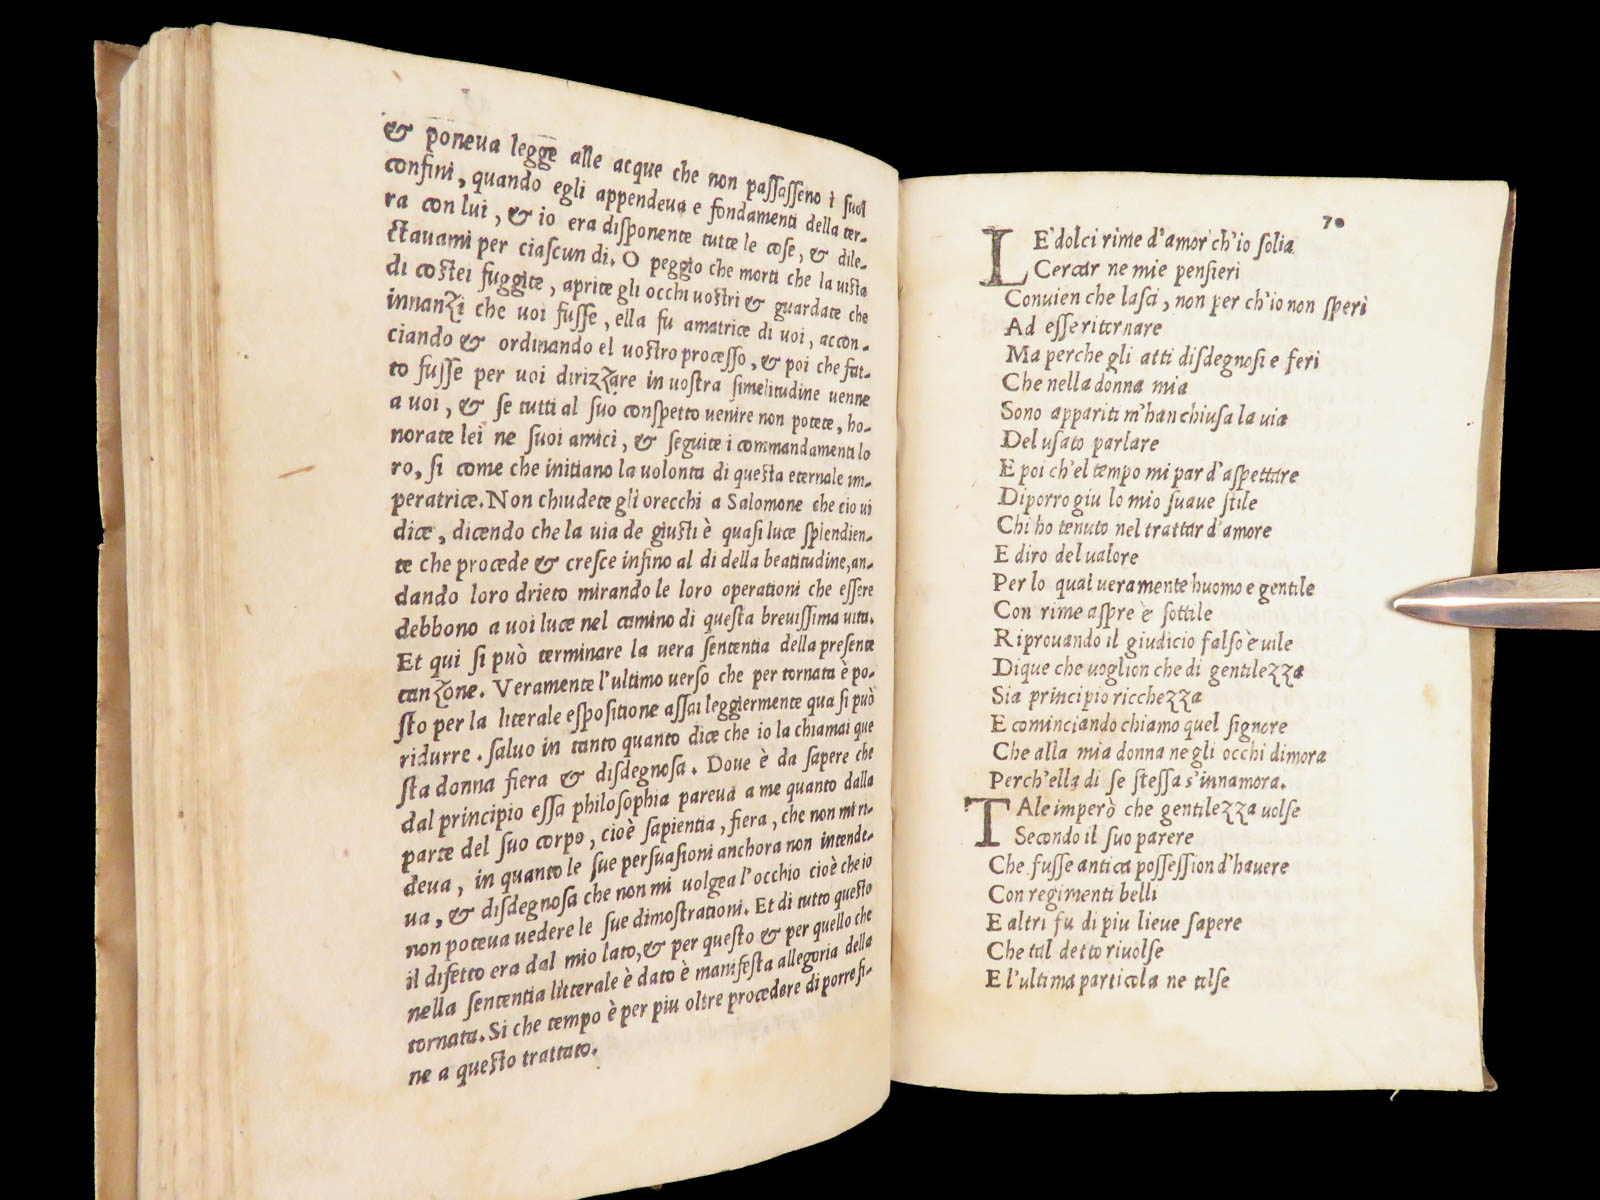 & poneva legge alle acque che non paſſaſſeno i ſuoi
confini, quando egli appendeua e fondamenti della ter-
ra con lui, & io era diſponente tutte le coſe, & dile-
ctauami per ciaſcun di. O peggio che morti che la uiſta
di coſtei fuggite, aprite gli occhi uoſtri & guardate che
innanzi che uoi fuſſe, ella fu amatrice di uoi, accon-
ciando & ordinando el uoſtro proceſſo, & poi che fat-
to fuſſe per uoi dirizzare in uoſtra ſimelitudine uenne
a uoi, & ſe tutti al ſuo conſpetto uenire non potete, ho-
norate lei ne ſuoi amici, & ſeguite i commandamenti lo
ro, ſi come che initiano la uolonta di queſta eternale im-
peratrice. Non chiudete gli orecchi a Salomone che cio ui
dice, dicendo che la uia de giuſti è quaſi luce ſplendien-
te che procede & creſce infino al di della beatitudine, an-
dando loro drieto mirando le loro operationi che eſſere
debbono a uoi luce nel camino di queſta breuiſſima uita.
Et qui ſi può terminare la uera ſententia della preſente
canzone. Veramente l'ultimo uerſo che per tornata è po-
ſto per la litterale eſpoſitione aſſai leggiermente qua ſi può
ridurre. ſaluo in tanto quanto dice che io la chiamai que
ſta donna fiera & diſdegnoſa. Doue è da ſapere che
dal principio eſſa philoſophia pareua a me quanto dalla
parte del ſuo corpo, cioè ſapientia, fiera, che non mi ri-
deua, in quanto le ſue perſuaſioni anchora non intende-
ua, & diſdegnoſa che non mi uolgea l'occhio cioè che io
non poteua uedere le ſue dimoſtrationi. Et di tutto queſto
il difetto era dal mio lato, & per queſto & per quello che
nella ſententia litterale è dato è manifeſta allegoria della
tornata. Si che tempo è per piu oltre procedere di porre fi-
ne a queſto trattato.
70
LE dolci rime d'amor ch'io ſolia
Cercar ne mie penſieri
Conuien che laſci, non per ch'io non ſperi
Ad eſſer itornare
Ma perche gli atti diſdegnoſi e feri
Che nella donna mia
Sono appariti m'han chiuſa la uia
Del uſato parlare
E poi ch'el tempo mi par d'aſpettare
Diporro giu lo mio ſuaue ſtile
Chi ho tenuto nel trattar d'amore
E diro del ualore
Per lo qual ueramente huomo e gentile
Con rime aſpre e ſottile
Riprouando il giudicio falſo e uile
Di que che uoglion che di gentilezza
Sia principio ricchezza
E cominciando chiamo quel ſignore
Che alla mia donna ne gli occhi dimora
Perch'ella di ſe ſteſſa s'innamora.
TAle imperò che gentilezza uolſe
Secondo il ſuo parere
Che fuſſe antica poſſeſſion d'hauere
Con regimenti belli
E altri fu di piu lieue ſapere
Che tal detto riuolſe
E l'ultima particola ne tolſe